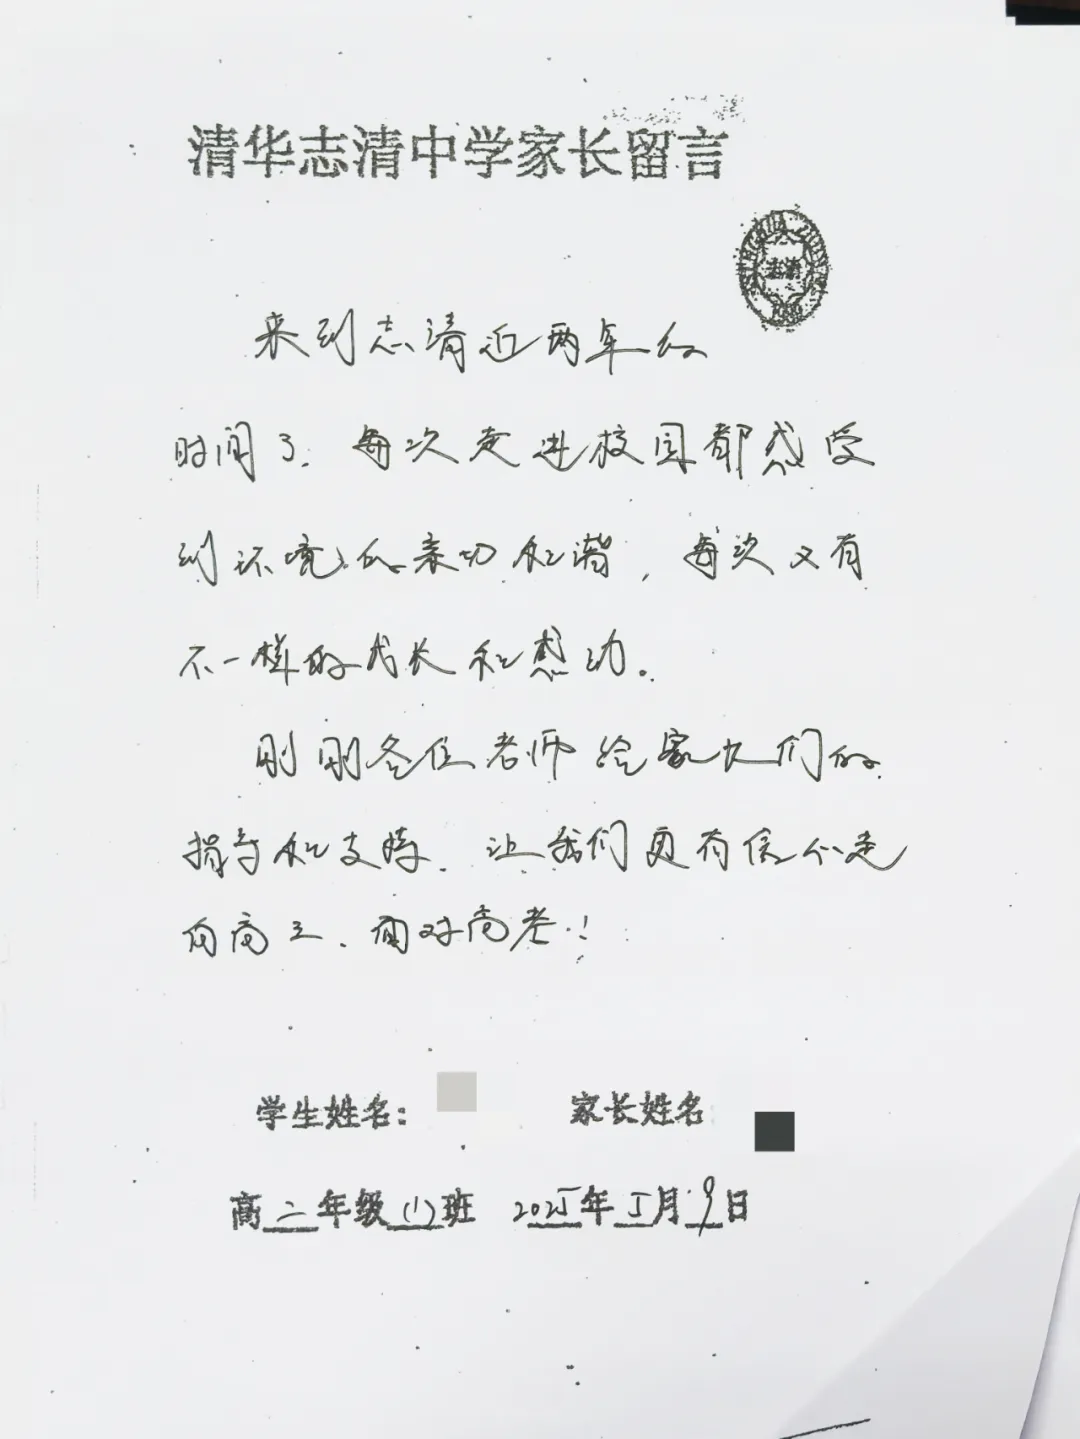 清华志清中学家长留言
志清
来到志清近两年的
时间了.每次走进校园都感受
到环境的亲切和谐,每次又有
不一样的成长和感动。
刚刚各位老师给家长们的
指导和支持.让我们更有信心走
向高三、面对高考!
学生姓名: 家长姓名
高二年级(1)班 2025年5月9日